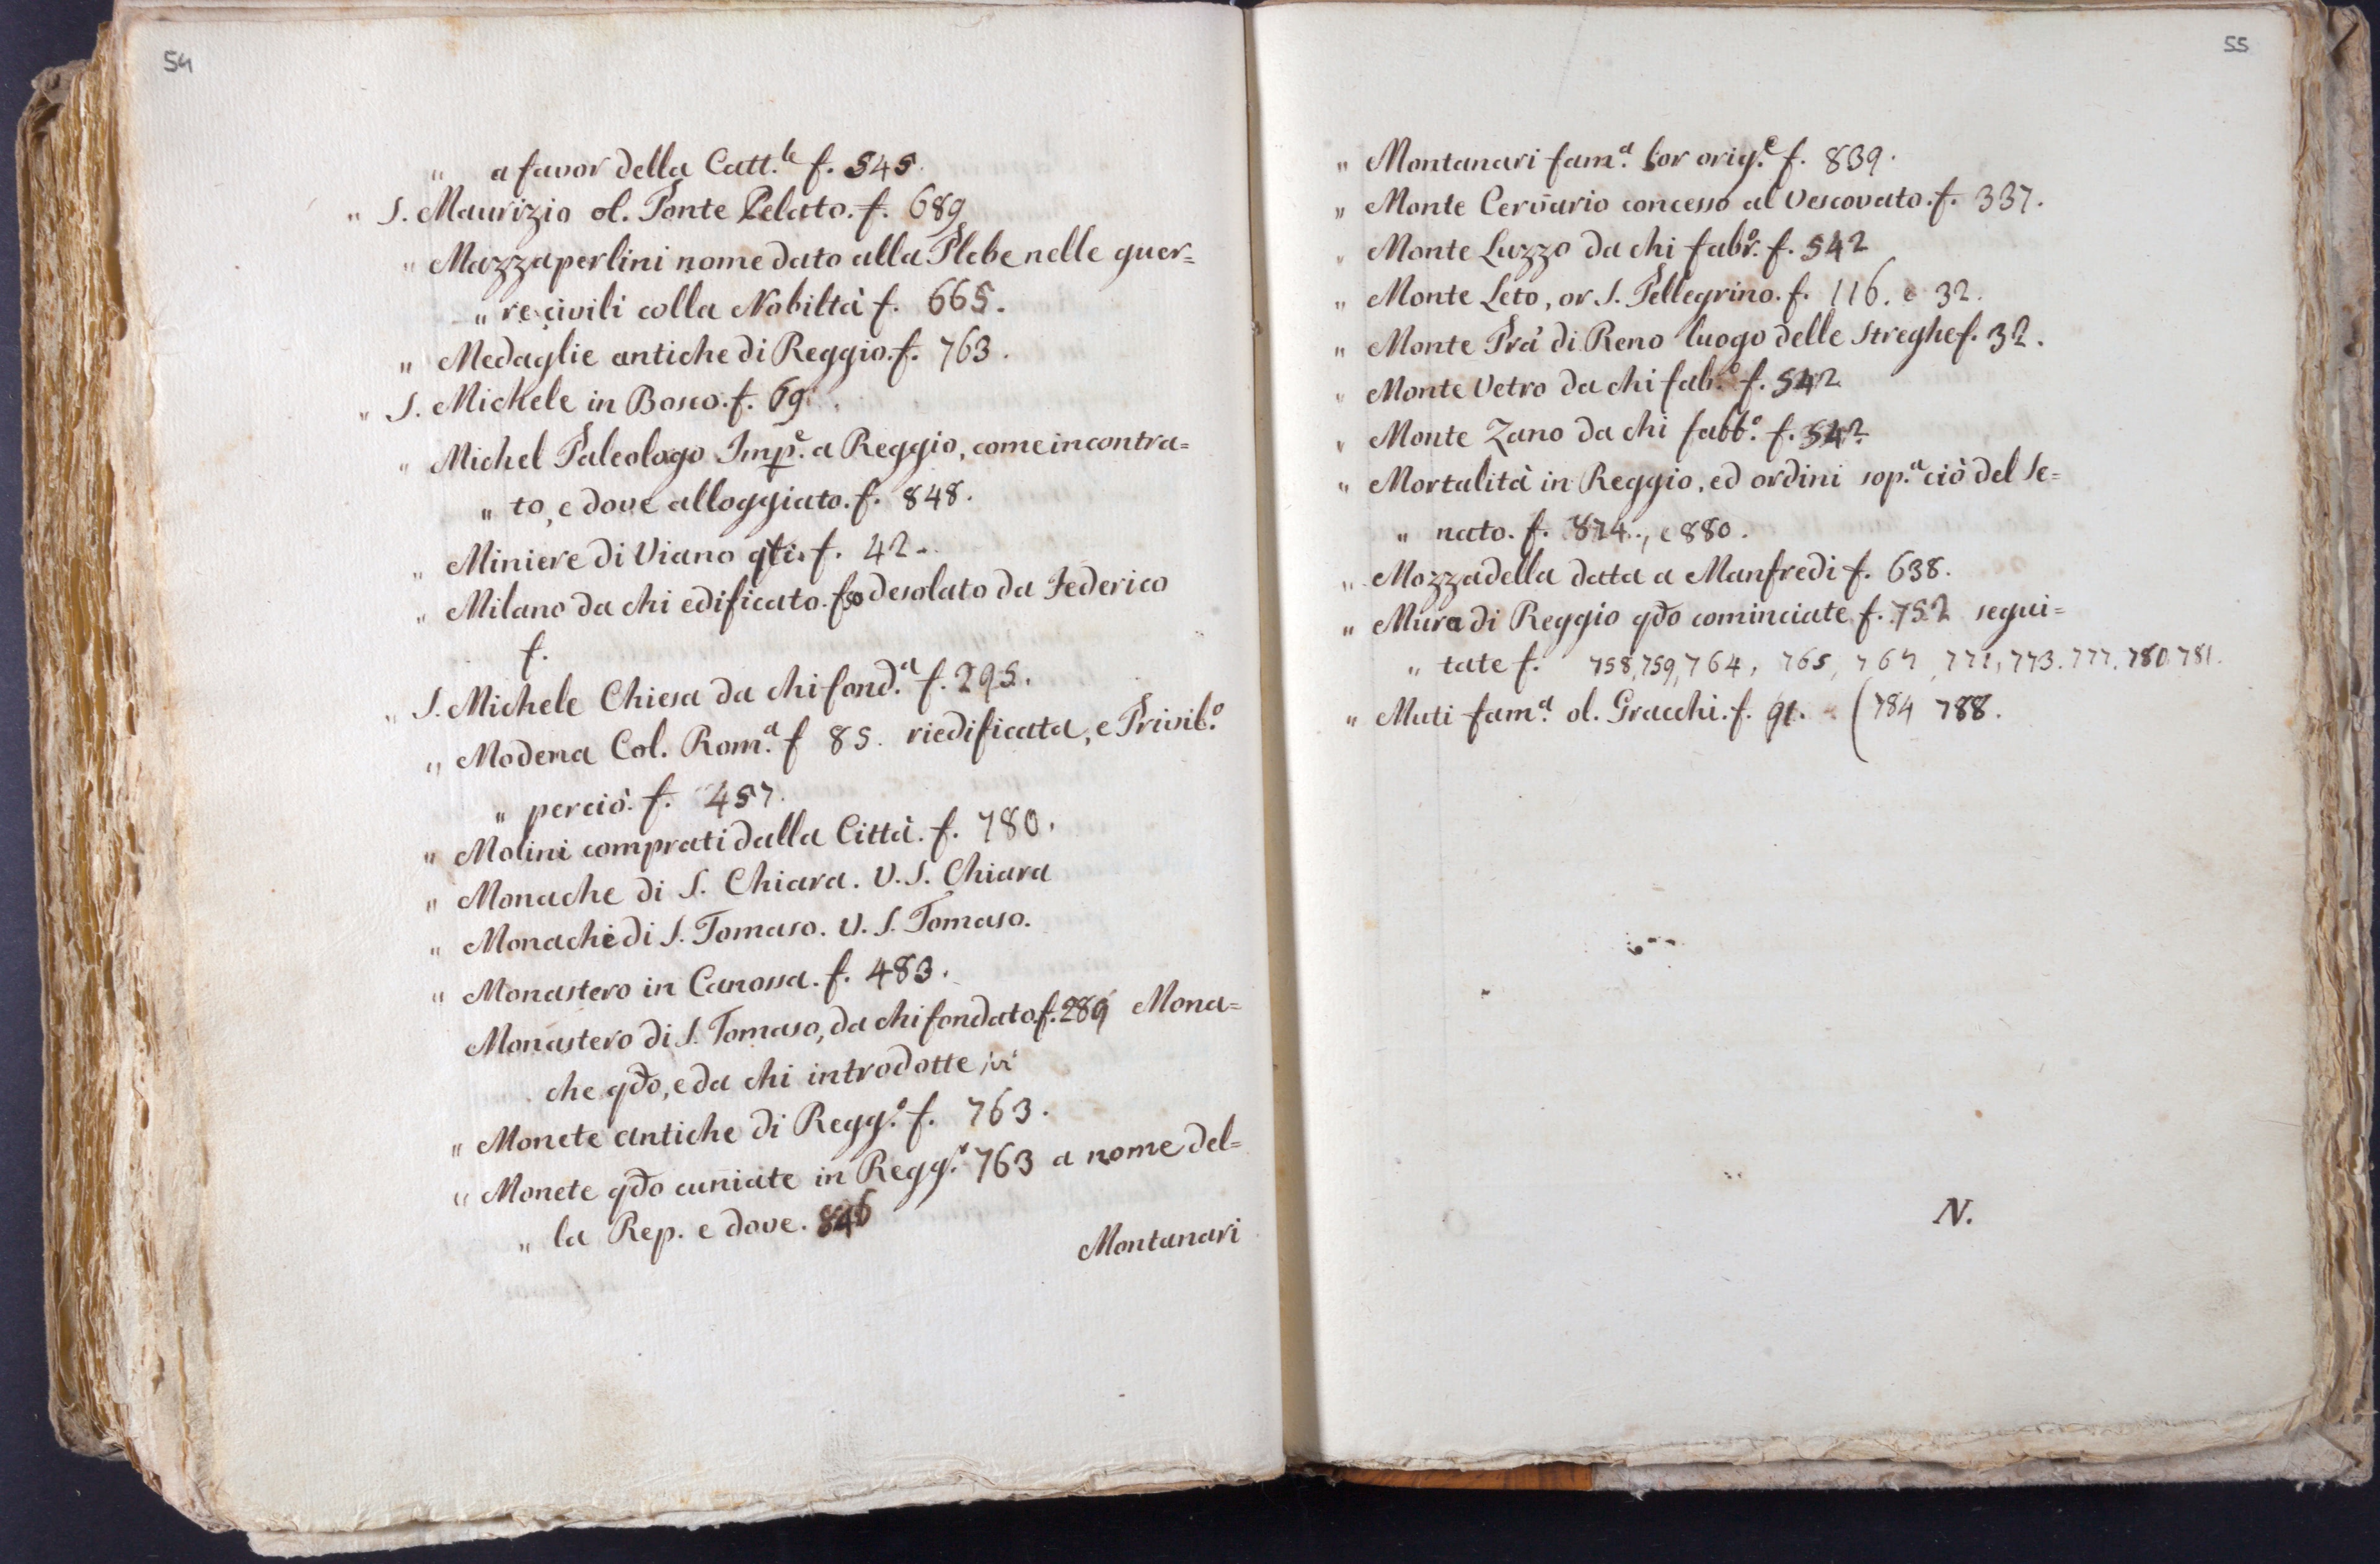 54
" a favor della Catt.le f. 545.
" S. Maurizio ol. Ponte Pelato. f. 689
" Mazzaperlini nome dato alla Plebe nelle guer=
" re civili colla Nobiltà f. 665.
" Medaglie antiche di Reggio. f. 763.
" S. Michele in Bosco. f. 69.
" Michel Paleologo Imp.e a Reggio, come incontra=
" to, e dove alloggiato. f. 848.
" Miniere di Viano qti. f. 42.
" Milano da chi edificato. f. 50 desolato da Federico
f.
" S. Michele Chiesa da chi fond.a f. 295.
" Modena Col. Rom.a f 85. riedificata, e Privil.o
" perciò. f. 457.
" Molini comprati dalla Città. f. 780.
" Monache di S. Chiara. V. S. Chiara
" Monache di S. Tomaso. V. S. Tomaso.
" Monastero in Canossa. f. 483.
Monastero di S. Tomaso, da chi fondato. f. 289 Mona=
che qdo, e da chi introdotte ivi
" Monete antiche di Regg.o f. 763.
" Monete qdo cuniate in Regg.o 763 a nome del=
" la Rep. e dove. 846
Montanari
55
" Montanari fam.a lor orig.e f. 839.
" Monte Cervario concesso al Vescovato. f. 337.
" Monte Luzzo da chi fabr.o f. 542
" Monte Leto, or S. Pellegrino. f. 116. e 32.
" Monte Prà di Reno luogo delle Streghe f. 32.
" Monte Vetro da chi fab.o f. 542
" Monte Zano da chi fabb.o f. 542
" Mortalità in Reggio, ed ordini sop.a ciò del Se=
" nato. f. 874., e 880.
" Mozzadella data a Manfredi f. 638.
" Mura di Reggio qdo cominciate f. 752 segui=
" tate f. 758, 759, 764, 765, 767, 772, 773. 777. 780. 781.
" Muti fam.a ol. Gracchi. f. 91. (784 788.
N.